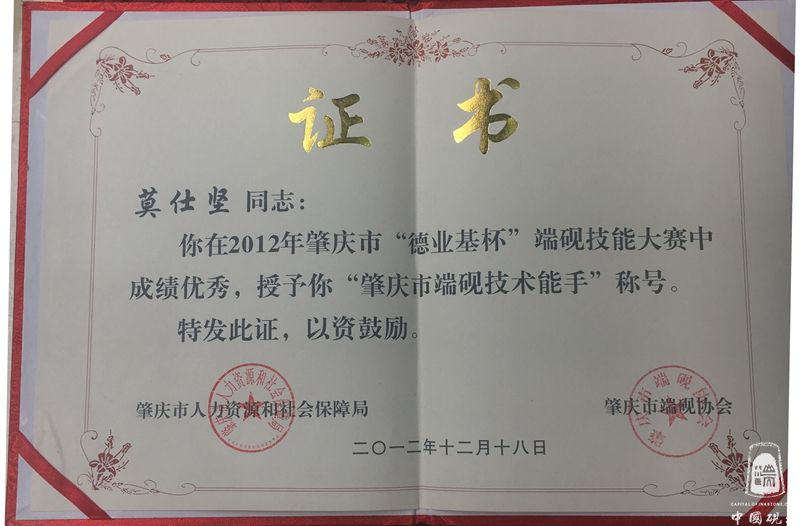 证书
莫仕坚 同志：
你在2012年肇庆市“德业基杯”端砚技能大赛中
成绩优秀，授予你“肇庆市端砚技术能手”称号。
特发此证，以资鼓励。
肇庆市人力资源和社会保障局
肇庆市端砚协会
二〇一二年十二月十八日
肇庆市人力资源和社会保障局
肇庆市端砚协会
CAPITAL OF INKSTONE.C
中國硯